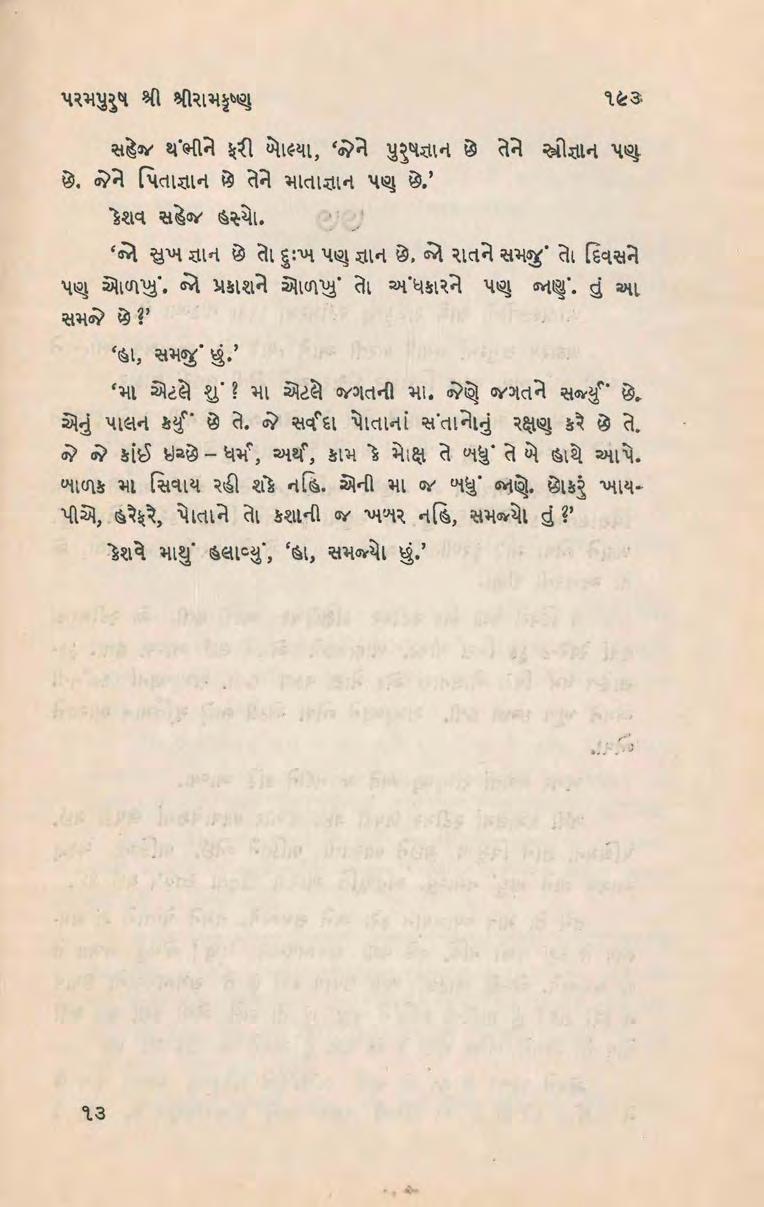 પરમપુરુષ શ્રી શ્રીરામકૃષ્ણ ૧૯૩
સહેજ થંભીને ફરી બોલ્યા, ‘જેને પુરુષજ્ઞાન છે તેને સ્ત્રીજ્ઞાન પણ
છે. જેને પિતાજ્ઞાન છે તેને માતાજ્ઞાન પણ છે.’
કેશવ સહેજ હસ્યો.
‘જો સુખ જ્ઞાન છે તો દુઃખ પણ જ્ઞાન છે. જો રાતને સમજું તો દિવસને
પણ ઓળખું. જો પ્રકાશને ઓળખું તો અંધકારને પણ જાણું. તું આ
સમજે છે ?’
‘હા, સમજું છું.’
‘મા એટલે શું ? મા એટલે જગતની મા. જેણે જગતને સર્જ્યું છે.
એનું પાલન કર્યું છે તે. જે સર્વદા પોતાનાં સંતાનોનું રક્ષણ કરે છે તે.
જે જે કાંઈ ઇચ્છે – ધર્મ, અર્થ, કામ કે મોક્ષ તે બધું તે બે હાથે આપે.
બાળક મા સિવાય રહી શકે નહિ. એની મા જ બધું જાણે. છોકરું ખાય-
પીએ, હરેફરે, પોતાને તો કશાની જ ખબર નહિ, સમજ્યો તું ?’
કેશવે માથું હલાવ્યું, ‘હા, સમજ્યો છું.’
૧૩